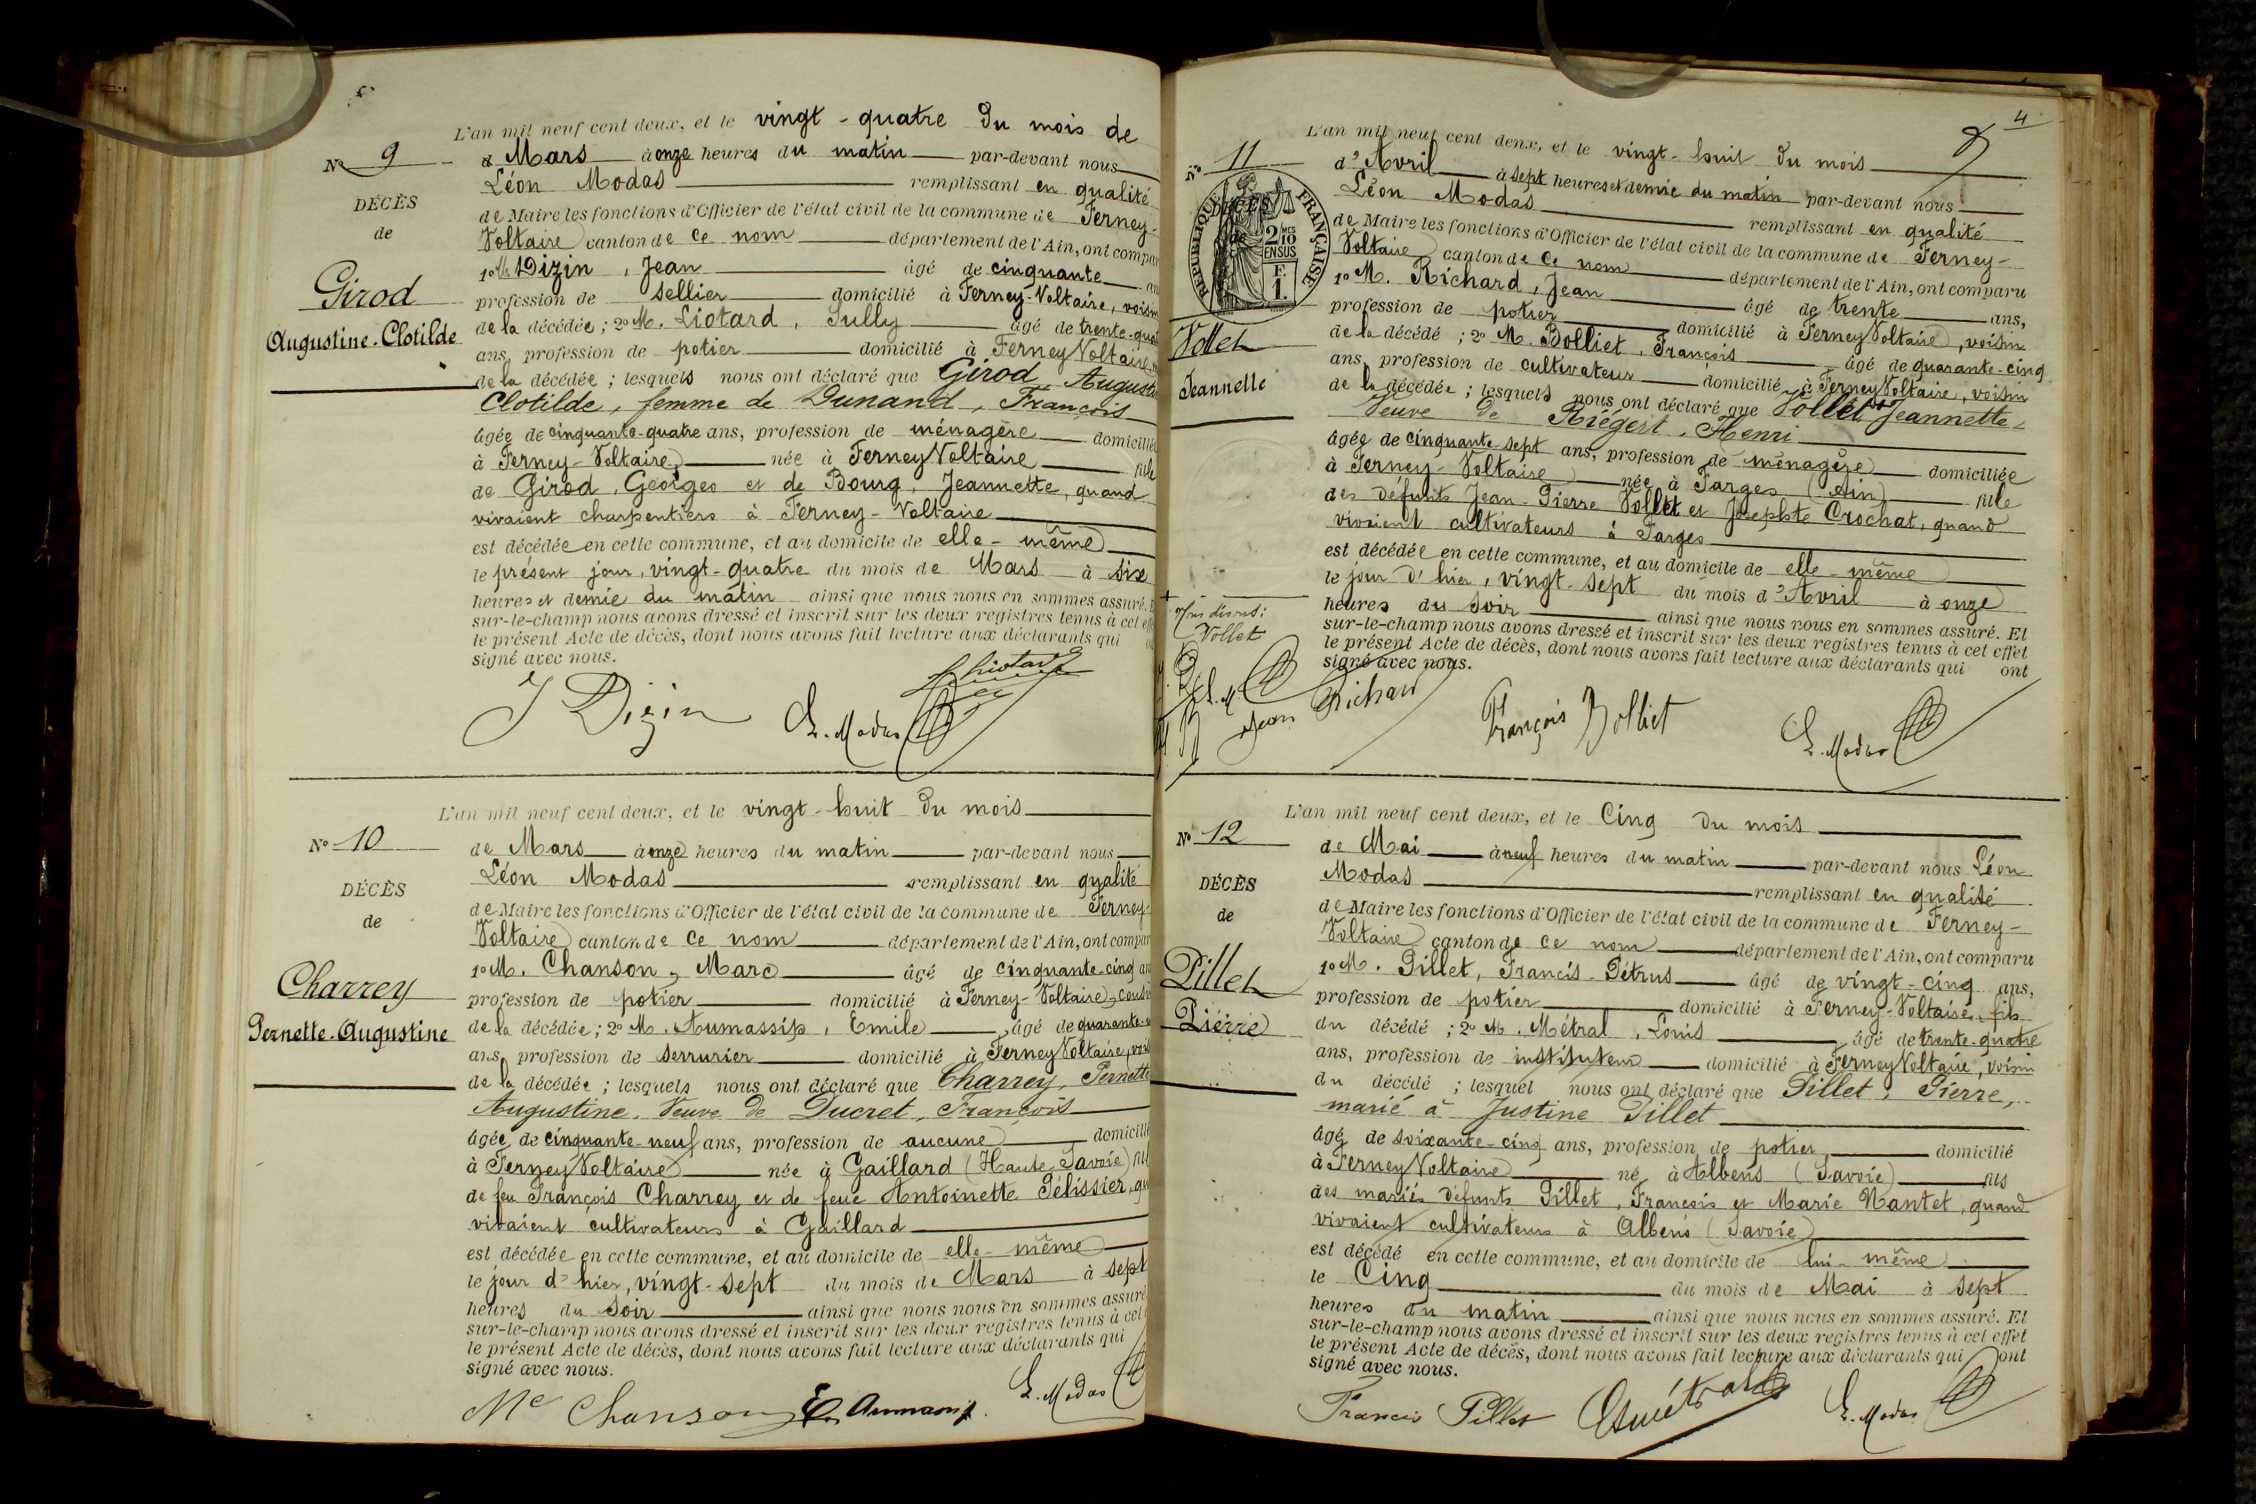 L'an mil neuf cent deux, et le vingt-quatre du mois de
No 9
de Mars à onze heures du matin par-devant nous
Léon Modas remplissant en qualité
DÉCÈS
de Maire les fonctions d'Officier de l'état civil de la commune de Ferney-
de
Voltaire canton de ce nom département de l'Ain, ont compar
1o M. Dizin, Jean âgé de cinquante
Girod
profession de sellier domicilié à Ferney-Voltaire, voisin
Augustine-Clotilde
de la décédée; 2o M. Liotard, Sully âgé de trente-qua
ans, profession de potier domicilié à Ferney Voltaire
de la décédée; lesquels nous ont déclaré que Girod Augusti
Clotilde, femme de Dunand, François
âgée de cinquante-quatre ans, profession de ménagère domiciliée
à Ferney-Voltaire née à Ferney Voltaire fille
de Girod, Georges et de Bourg, Jeannette, quand
vivaient charpentiers à Ferney-Voltaire
est décédée en cette commune, et au domicile de elle-même
le présent jour, vingt-quatre du mois de Mars à six
heures et demie du matin ainsi que nous nous en sommes assuré. E
sur-le-champ nous avons dressé et inscrit sur les deux registres tenus à cet eff
le présent Acte de décès, dont nous avons fait lecture aux déclarants qui
signé avec nous.
J Dizin L. Modas Liotard
L'an mil neuf cent deux, et le vingt-huit du mois
No 10
de Mars à onze heures du matin par-devant nous
Léon Modas remplissant en qualité
DÉCÈS
de Maire les fonctions d'Officier de l'état civil de la commune de Ferney-
de
Voltaire canton de ce nom département de l'Ain, ont compar
Charrey
1o M. Chanson, Marc âgé de cinquante-cinq an
profession de potier domicilié à Ferney-Voltaire, cousi
Pernette-Augustine
de la décédée; 2o M. Aumassip, Emile âgé de quarante
ans, profession de serrurier domicilié à Ferney Voltaire, vois
de la décédée; lesquels nous ont déclaré que Charrey, Pernette
Augustine, Veuve de Ducret, François
âgée de cinquante-neuf ans, profession de aucune domicilié
à Ferney Voltaire née à Gaillard (Haute-Savoie) fil
de feu François Charrey et de feue Antoinette Pélissier, qu
vivaient cultivateurs à Gaillard
est décédée en cette commune, et au domicile de elle-même
le jour d'hier, vingt-sept du mois de Mars à sept
heures du soir ainsi que nous nous en sommes assuré
sur-le-champ nous avons dressé et inscrit sur les deux registres tenus à cet
le présent Acte de décès, dont nous avons fait lecture aux déclarants qui
signé avec nous.
Mc Chanson E. Aumassip L. Modas
4
L'an mil neuf cent deux, et le vingt-huit du mois
No 11
d'Avril à sept heures et demie du matin par-devant nous
Léon Modas remplissant en qualité
DÉCÈS
de
RÉPUBLIQUE FRANÇAISE
2 MES
10
EN SUS
F.
1.
de Maire les fonctions d'Officier de l'état civil de la commune de Ferney-
Voltaire canton de ce nom département de l'Ain, ont comparu
1o M. Richard, Jean âgé de trente ans,
profession de potier domicilié à Ferney Voltaire, voisin
Vollet
de la décédé; 2o M. Bolliet, François âgé de quarante-cinq
Jeannette
ans, profession de cultivateur domicilié à Ferney Voltaire, voisin
de la décédée; lesquels nous ont déclaré que Vollet Jeannette
Veuve de Riégert, Henri
âgée de cinquante-sept ans, profession de ménagère domiciliée
à Ferney-Voltaire née à Farges (Ain) fille
des défunts Jean-Pierre Vollet et Josephte Crochat, quand
vivaient cultivateurs à Farges
est décédée en cette commune, et au domicile de elle-même
le jour d'hier, vingt-sept du mois d'Avril à onze
heures du soir ainsi que nous nous en sommes assuré. Et
+ Nous disons:
Vollet
sur-le-champ nous avons dressé et inscrit sur les deux registres tenus à cet effet
le présent Acte de décès, dont nous avons fait lecture aux déclarants qui ont
signé avec nous.
Jean Richard François Bolliet L. Modas
L'an mil neuf cent deux, et le Cinq du mois
No 12
de Mai à neuf heures du matin par-devant nous Léon
Modas remplissant en qualité
DÉCÈS
de Maire les fonctions d'Officier de l'état civil de la commune de Ferney-
de
Voltaire canton de ce nom département de l'Ain, ont comparu
Pillet
1o M. Pillet, Francis-Pétrus âgé de vingt-cinq ans,
profession de potier domicilié à Ferney-Voltaire, fils
Pierre
du décédé; 2o M. Métral, Louis âgé de trente-quatre
ans, profession de instituteur domicilié à Ferney Voltaire, voisin
du décédé; lesquel nous ont déclaré que Pillet, Pierre,
marié à Justine Pillet
âgé de soixante-cinq ans, profession de potier, domicilié
à Ferney Voltaire né à Albens (Savoie) fils
des mariés défunts Pillet, François et Marie Nantet, quand
vivaient cultivateurs à Albens (Savoie)
est décédé en cette commune, et au domicile de lui-même
le Cinq du mois de Mai à sept
heures du matin ainsi que nous nous en sommes assuré. Et
sur-le-champ nous avons dressé et inscrit sur les deux registres tenus à cet effet
le présent Acte de décès, dont nous avons fait lecture aux déclarants qui ont
signé avec nous.
Francis Pillet Métral L. Modas